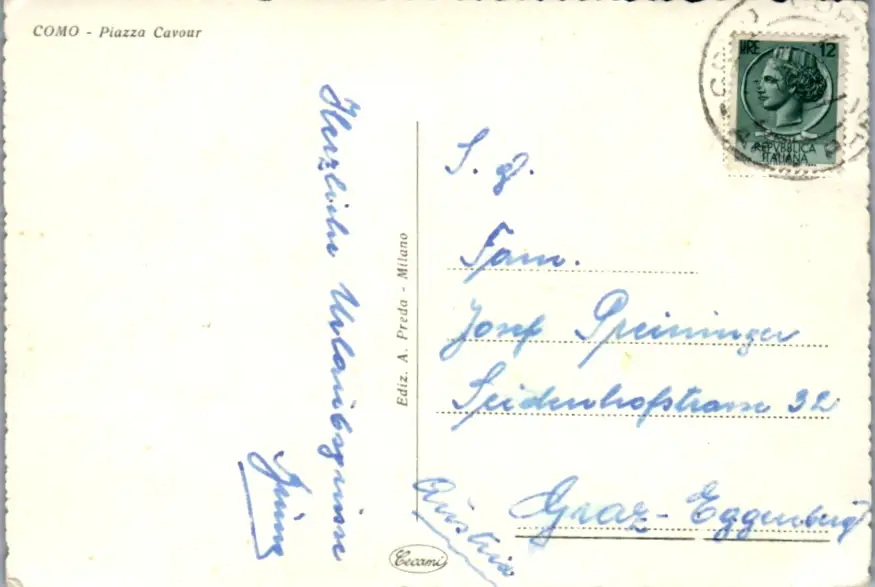 COMO - Piazza Cavour
LIRE 12
REPVBBLICA
ITALIANA
Herzliche Urlaubsgrüsse
S. g.
Fam.
Josef Preininger
Seidenhofstrasse 32
Graz-Eggenberg
Austria
Ediz. A. Preda - Milano
Cecami